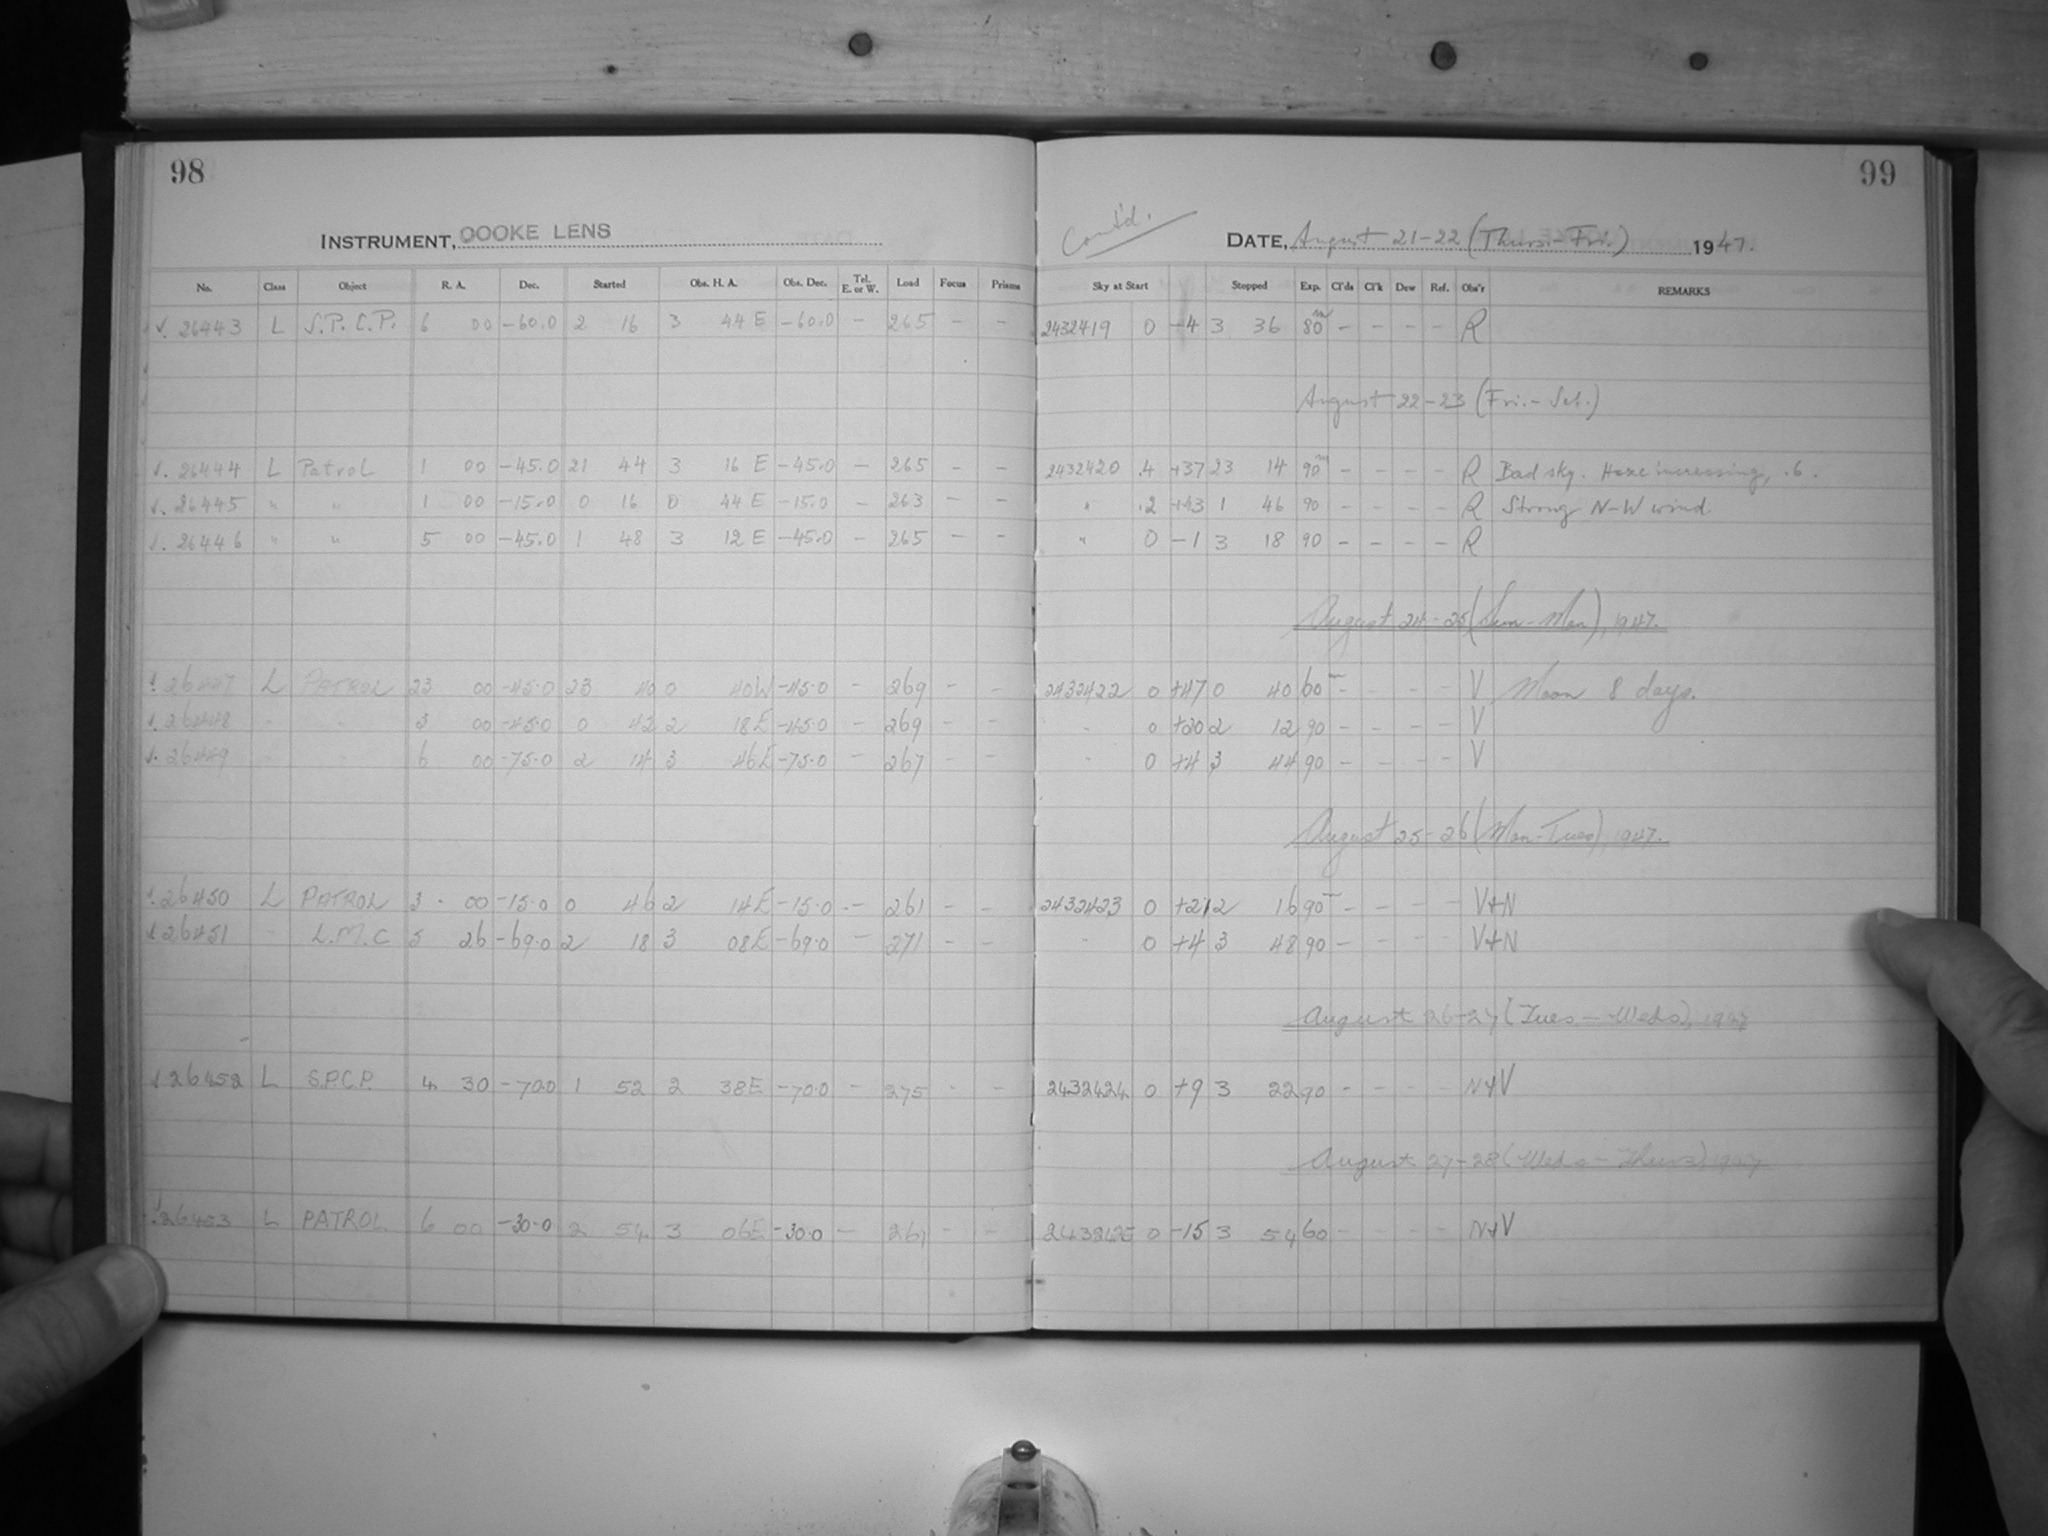 98
99
INSTRUMENT, OOOKE LENS
Cont'd. DATE, August 21-22 (Thurs.-Fri.) 1947.
No. Class Object R. A. Dec. Started Obs. H. A. Obs. Dec. Tel. E. or W. Load Focus Prisms Sky at Start Stopped Exp. Cl'ds Cl'k Dew Ref. Obs'r REMARKS
√. 26443 L S.P.C.P. 6 00 -60.0 2 16 3 44 E -60.0 - 265 - - 2432419 0 -4 3 36 80m - - - - R
August 22-23 (Fri.-Sat.)
√. 26444 L Patrol 1 00 -45.0 21 44 3 16 E -45.0 - 265 - - 2432420 .4 +37 23 14 90m - - - - R Bad sky. Haze increasing, .6.
√. 26445 " " 1 00 -15.0 0 16 0 44 E -15.0 - 263 - - " .2 +13 1 46 90 - - - - R Strong N-W wind.
√. 26446 " " 5 00 -45.0 1 48 3 12 E -45.0 - 265 - - " 0 -1 3 18 90 - - - - R
August 24-25 (Sun-Mon), 1947.
√. 26447 L PATROL 23 00 -45.0 23 40 0 40W -45.0 - 269 - - 2432422 0 +47 0 40 60m - - - - V Moon 8 days.
√. 26448 " " 3 00 -45.0 0 42 2 18E -45.0 - 269 - - " 0 +20 2 12 90 - - - - V
√. 26449 " " 6 00 -75.0 2 14 3 46E -75.0 - 267 - - " 0 +4 3 44 90 - - - - V
August 25-26 (Mon-Tues), 1947.
√. 26450 L PATROL 3 00 -15.0 0 46 2 14E -15.0 - 261 - - 2432423 0 +21 2 16 90m - - - - V+N
√ 26451 " L.M.C 5 26 -69.0 2 18 3 08E -69.0 - 271 - - " 0 +4 3 48 90 - - - - V+N
August 26-27 (Tues - Weds), 1947
√ 26452 L S.P.C.P. 4 30 -70.0 1 52 2 38E -70.0 - 275 - - 2432424 0 +9 3 22 90 - - - - N+V
August 27-28 (Weds - Thurs) 1947
√. 26453 L PATROL 6 00 -30.0 2 54 3 06E -30.0 - 261 - - 2432425 0 -15 3 54 60 - - - - N+V